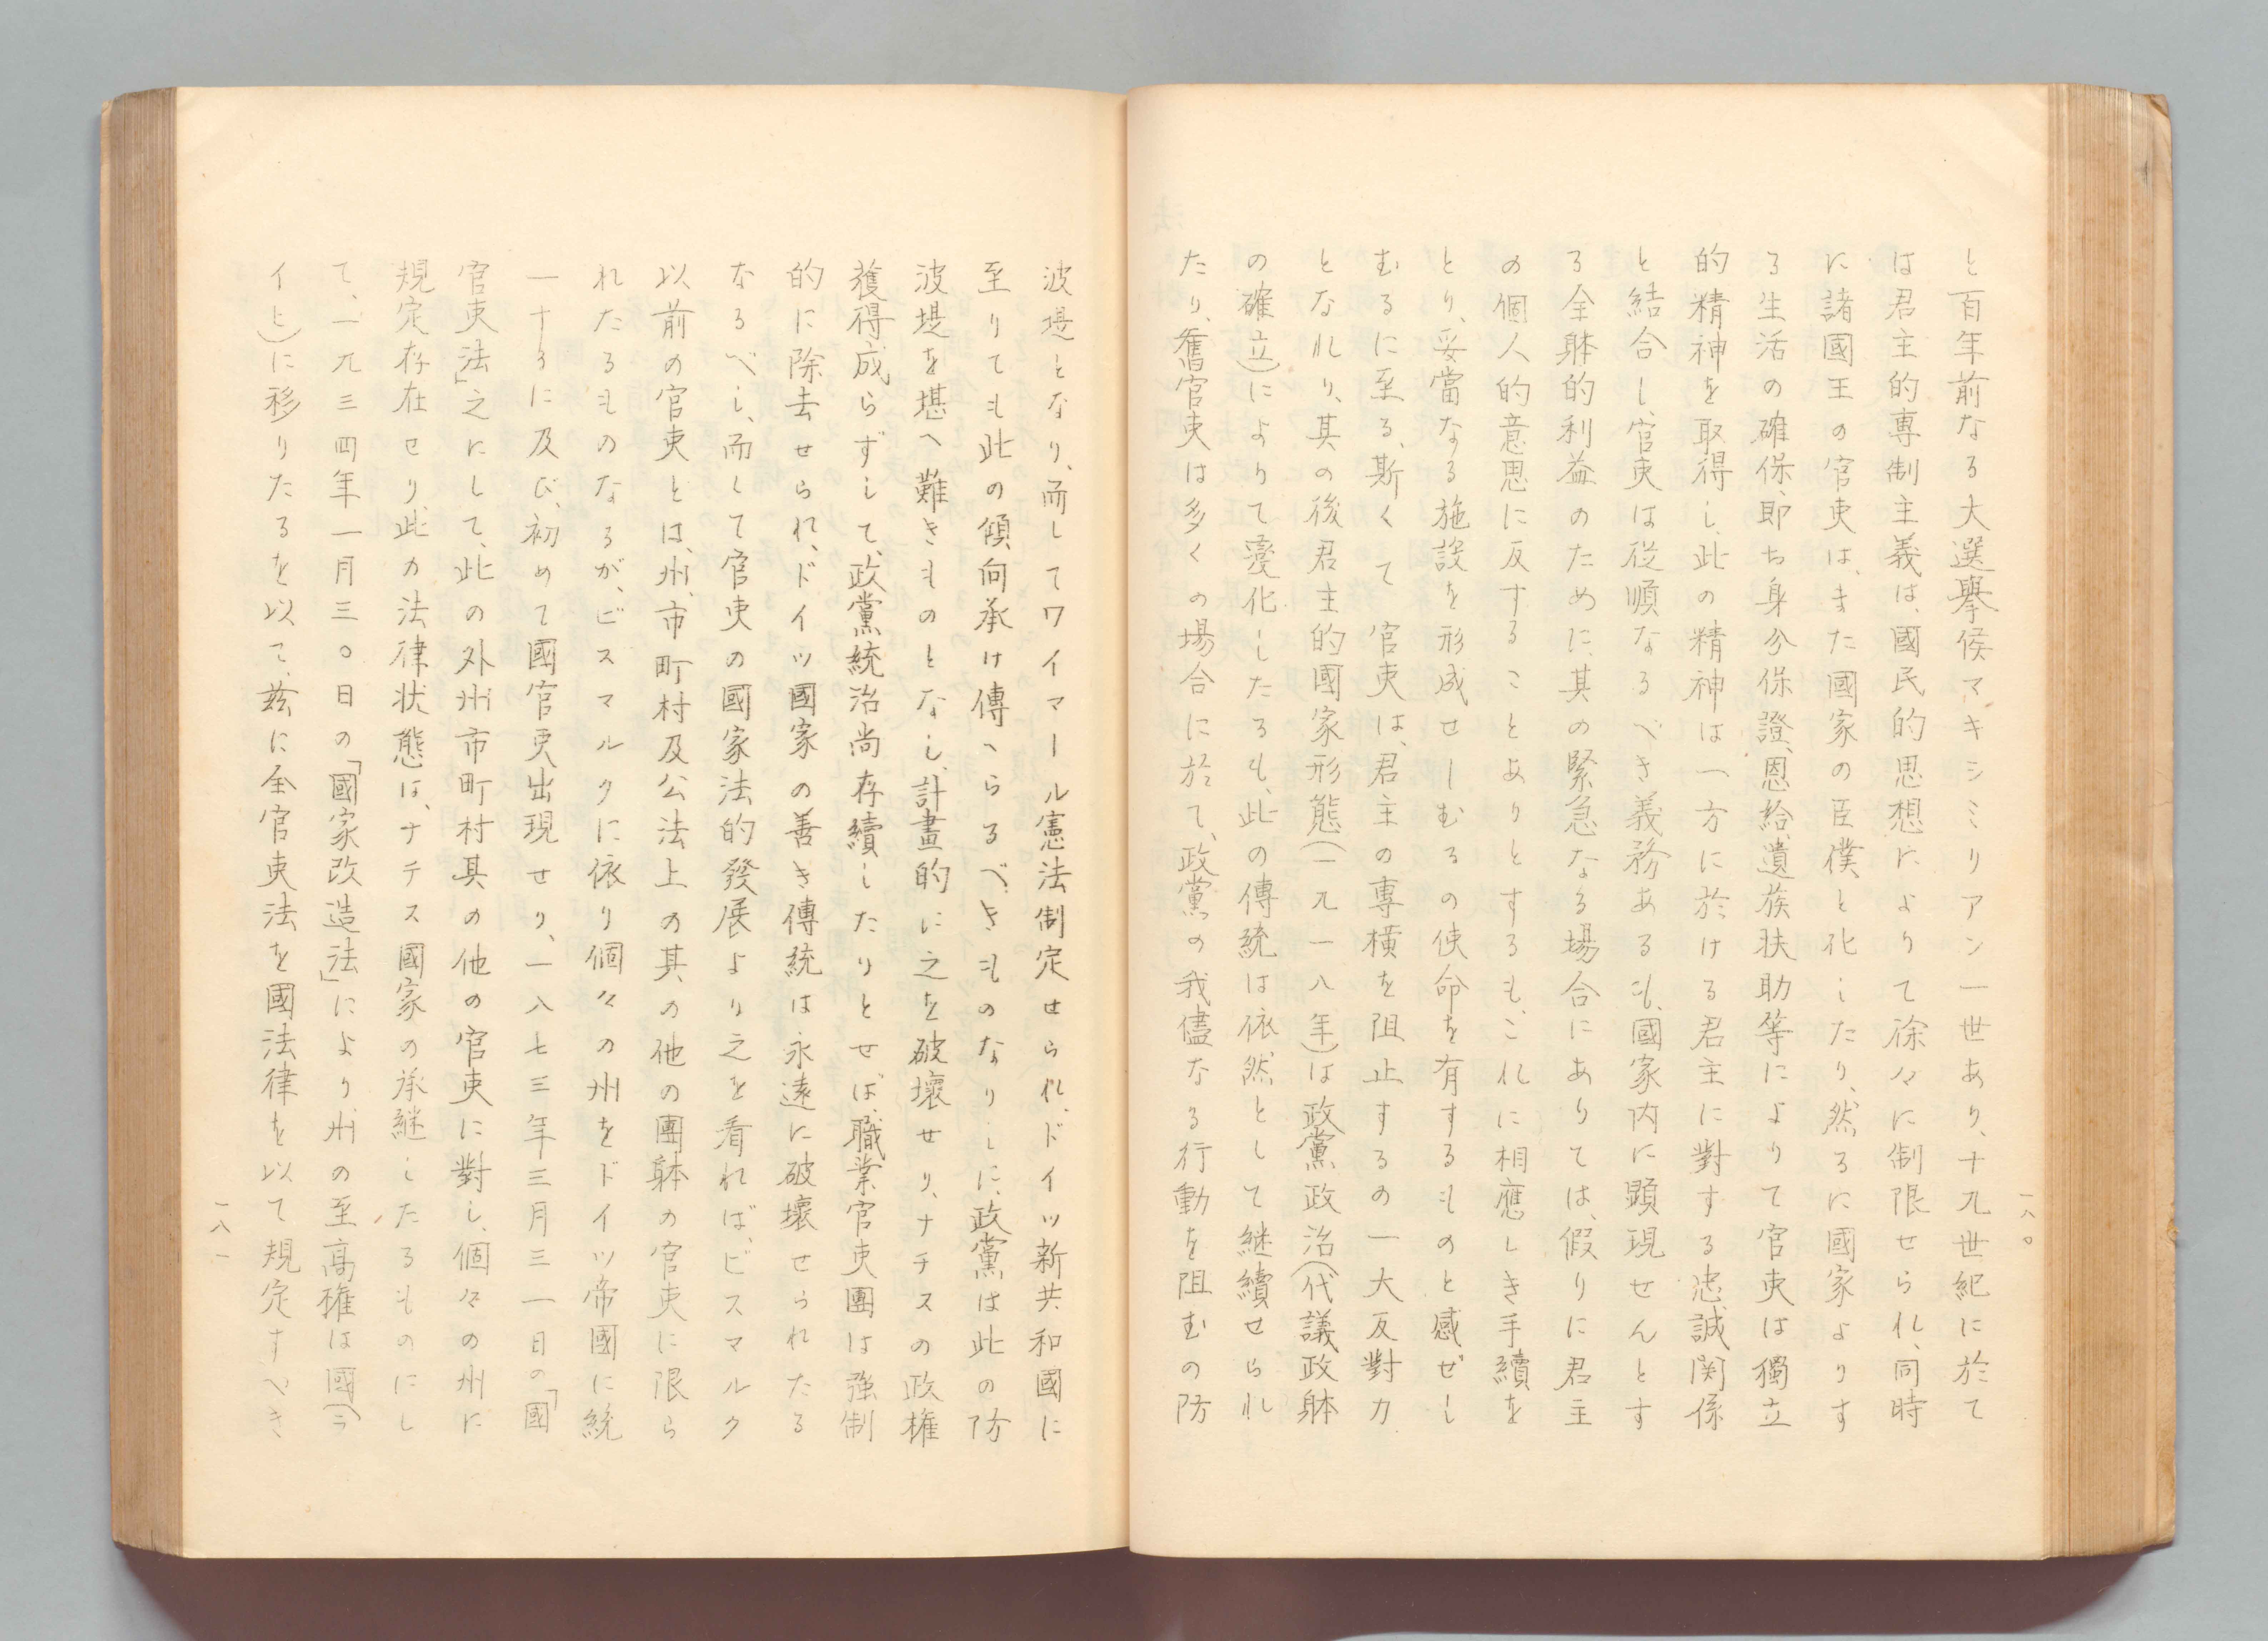 一八〇
と百年前なる大選擧侯マキシミリアン一世あり、十九世紀に於て
は君主的專制主義は、國民的思想によりて徐々に制限せられ、同時
に諸國王の官吏は、また國家の臣僕と化したり、然るに國家よりす
る生活の確保、即ち身分保證、恩給、遺族扶助等によりて官吏は獨立
的精神を取得し、此の精神は一方に於ける君主に對する忠誠関係
と結合し、官吏は從順なるべき義務あるも、國家内に顕現せんとす
る全躰的利益のために、其の緊急なる場合にありては、假りに君主
の個人的意思に反することありとするも、これに相應しき手續を
とり、妥當なる施設を形成せしむるの使命を有するものと感ぜし
むるに至る、斯くて官吏は、君主の專横を阻止するの一大反對力
となれり、其の後君主的國家形態(一九一八年)は政黨政治(代議政躰
の確立)によりて憂化したるも、此の傳統は依然として継續せられ
たり、舊官吏は多くの場合に於て、政黨の我儘なる行動を阻むの防
波堤となり、而してワイマール憲法制定せられ、ドイツ新共和國に
至りても此の傾向承け傳へらるべきものなりしに、政黨は此の防
波堤を堪へ難きものとなし、計畫的に之を破壞せり、ナチスの政権
獲得成らずして、政黨統治尚存續したりとせば、職業官吏團は強制
的に除去せられ、ドイツ國家の善き傳統は永遠に破壞せられたる
なるべし、而して官吏の國家法的發展より之を看れば、ビスマルク
以前の官吏とは、州、市町村及公法上の其の他の團躰の官吏に限ら
れたるものなるが、ビスマルクに依り個々の州をドイツ帝國に統
一するに及び、初めて國官吏出現せり、一八七三年三月三一日の「國
官吏法」之にして、此の外州市町村其の他の官吏に對し、個々の州に
規定存在せり、此の法律状態は、ナチス國家の承継したるものにし
て、一九三四年一月三〇日の「國家改造法」により、州の至高権は國(ラ
イヒ)に移りたるを以て、茲に全官吏法を國法律を以て規定すべき
一八一